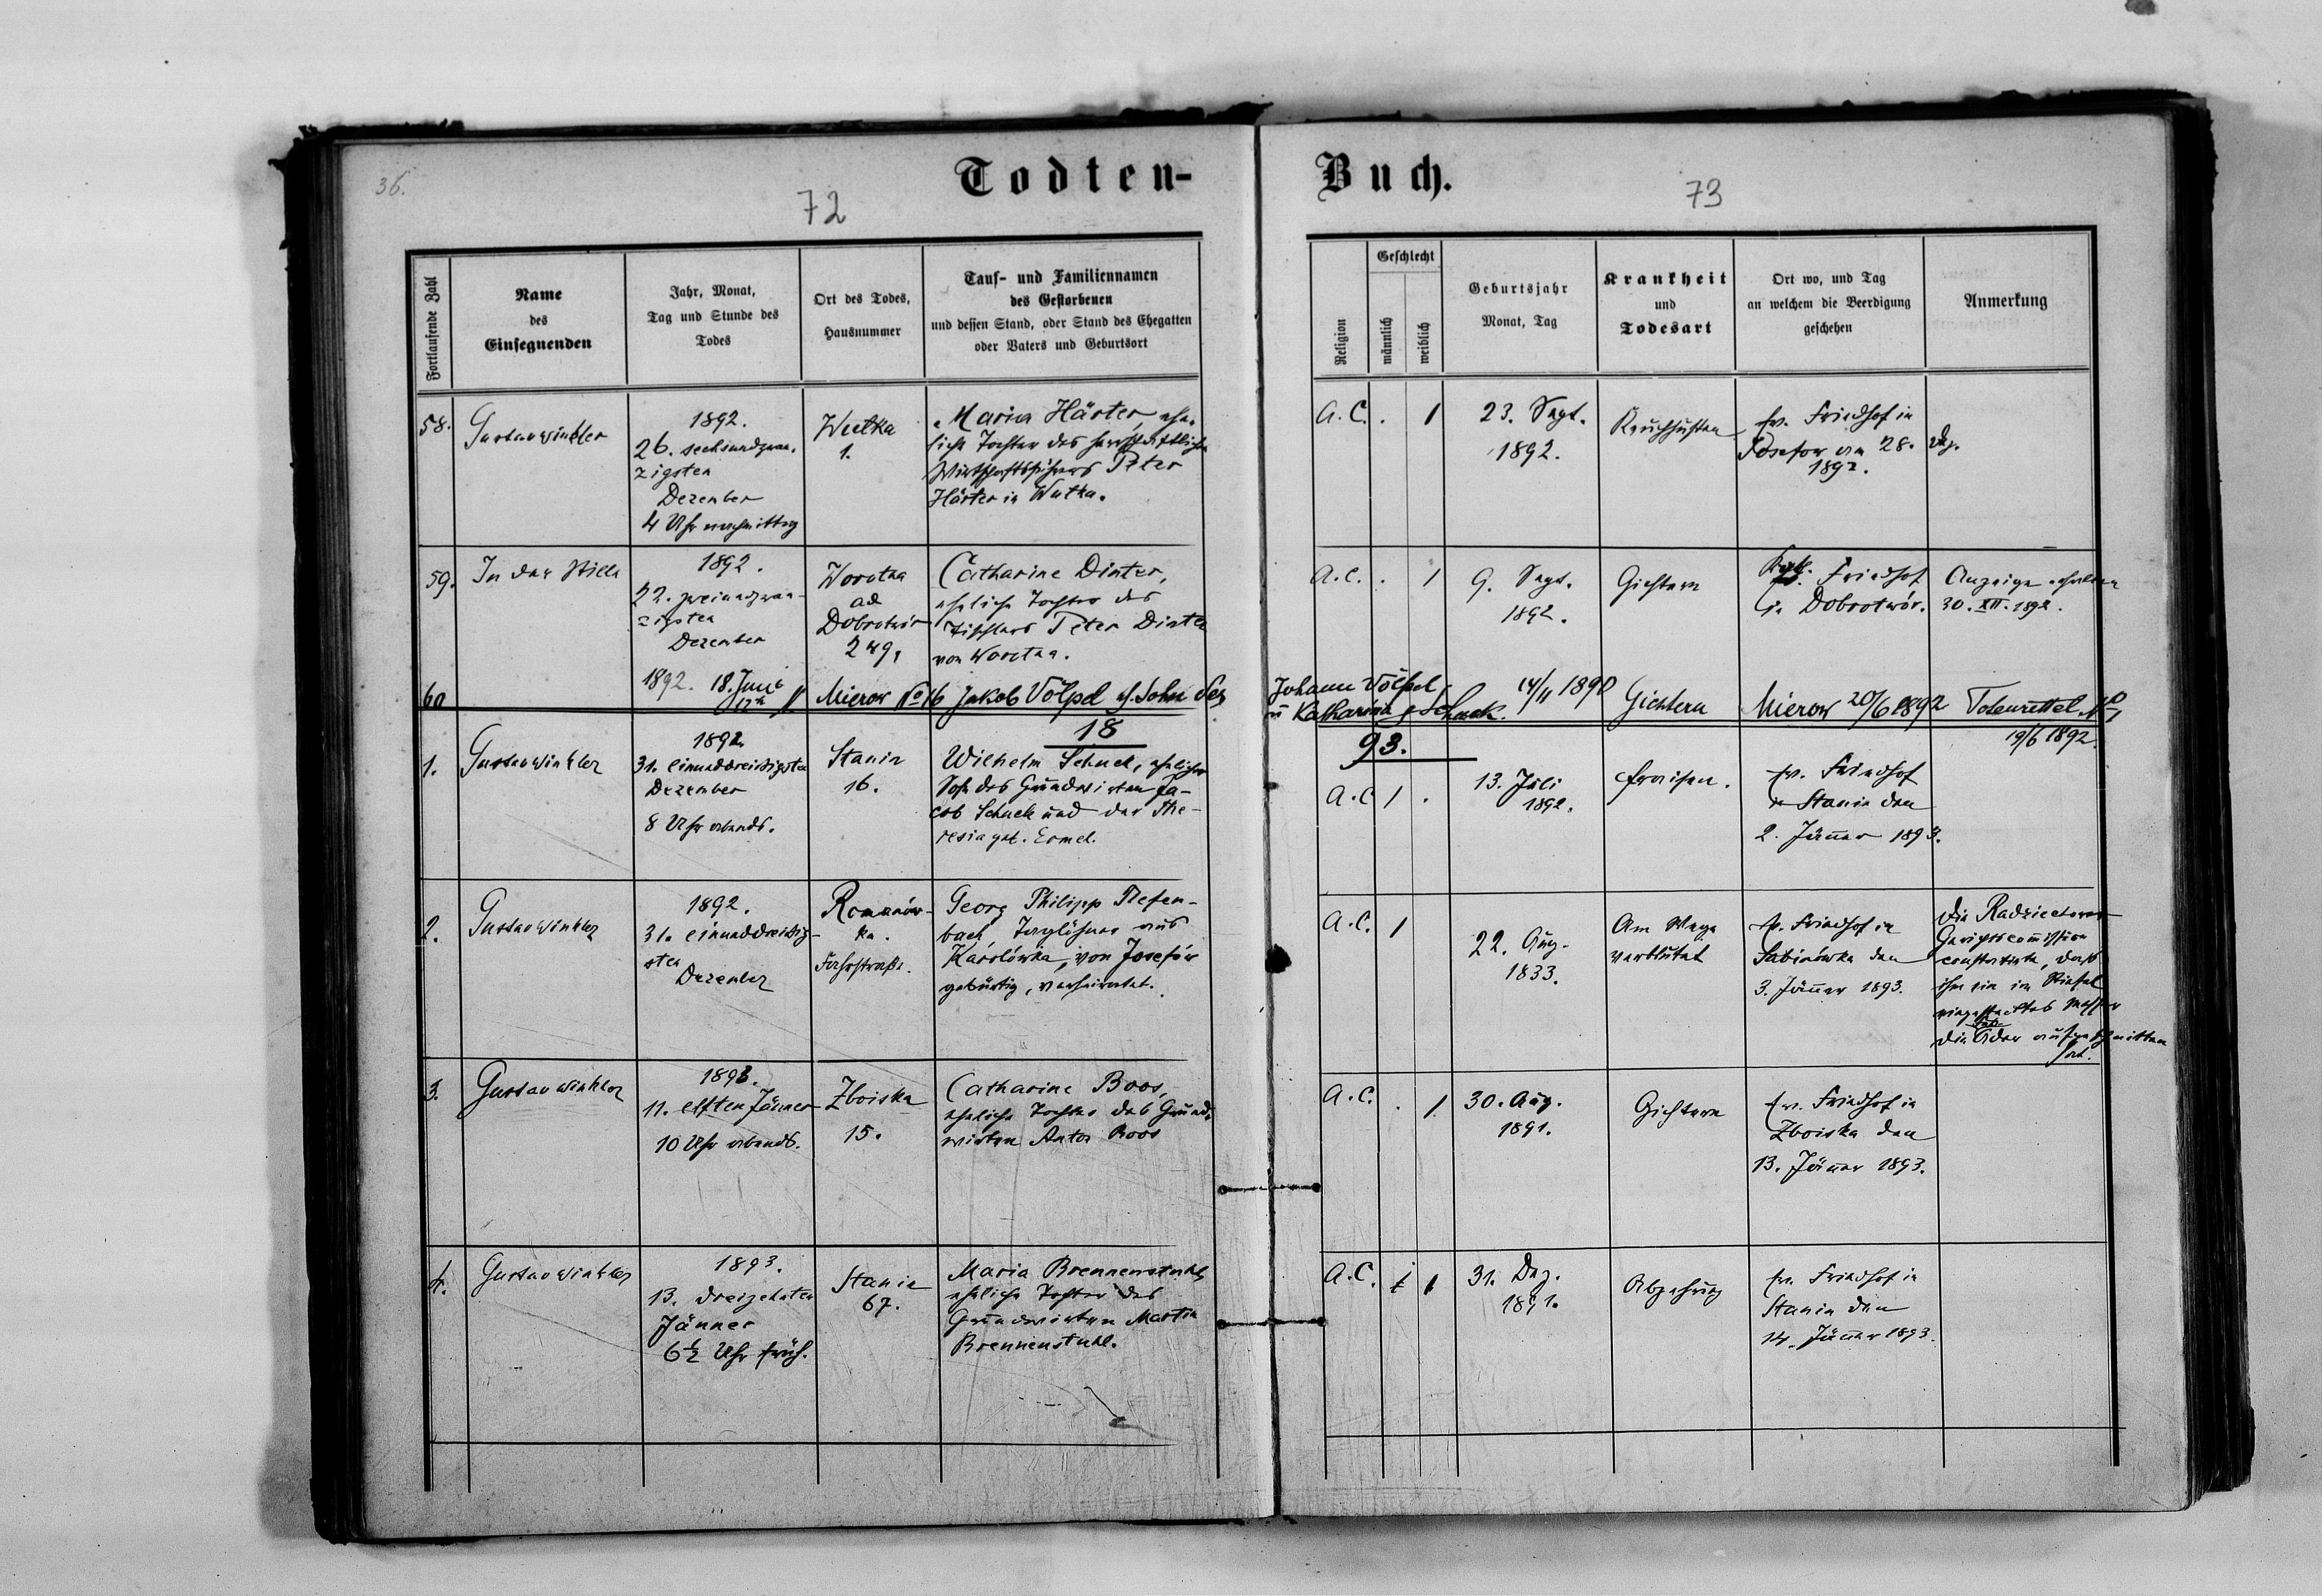 36.
72
Todten-
Fortlaufende Zahl
Name
des
Einsegnenden
Jahr, Monat,
Tag und Stunde des
Todes
Ort des Todes,
Hausnummer
Tauf- und Familiennamen
des Gestorbenen
und dessen Stand, oder Stand des Ehegatten
oder Vaters und Geburtsort
58.
Gustav Winkler
1892.
26. sechsundzwan-
zigsten
Dezember
4 Uhr nachmittag
Wutka
1.
Maria Härter, ehe-
liche Tochter des herrschaftlichen
Wirtschaftsführers Peter
Härter in Wutka.
59.
In der Stille
1892.
22. zweiundzwan-
zigsten
Dezember
Worotna
ad
Dobrotwór
249,
Catharine Dinter,
eheliche Tochter des
Tischlers Peter Dinter
von Worotna.
60
1892. 18. Juni
Mierow No 16
Jakob Völpel
Sohn des
18
1.
Gustav Winkler
1892.
31. einunddreißigsten
Dezember
8 Uhr abends.
Stanin
16.
Wilhelm Schuck, ehelicher
Sohn des Grundwirten Ja-
cob Schuck und der The-
resia geb. Ermel.
2.
Gustav Winkler
1892.
31. einunddreißig-
sten
Dezember
Romanów-
ka.
Fahrstraße.
Georg Philipp Tiefen-
bach, Taglöhner aus
Karolówka, von Josefów
gebürtig, verheiratet.
3.
Gustav Winkler
1893.
11. elften Jänner
10 Uhr abends.
Zboiska
15.
Catharine Boos,
eheliche Tochter des Grund-
wirten Anton Boos
4.
Gustav Winkler
1893.
13. dreizehnten
Jänner
6½ Uhr früh.
Stanin
67.
Maria Brennenstuhl,
eheliche Tochter des
Grundwirten Martin
Brennenstuhl.
Buch.
73
Religion
Geschlecht
männlich
weiblich
Geburtsjahr
Monat, Tag
Krankheit
und
Todesart
Ort wo, und Tag
an welchem die Beerdigung
geschehen
Anmerkung
A.C. . 1
23. Sept.
1892.
Keuchhusten
ev. Friedhof in
Josefow am 28. Dez.
1892.
A.C. . 1
9. Sept.
1892.
Gichtern
Friedhof
in Dobrotwór.
Anzeige erhalten
30. XII. 1892.
Johann Völpel
u Katharina g Schuck.
14/11 1890
Gichtern
Mierow 20/6 1892
Totenzettel No 1
19/6 1892.
93.
A.C. 1 .
13. Juli
1892.
Fraisen.
ev. Friedhof
in Stanin den
2. Jänner 1893.
A.C. 1
22. Aug.
1833.
Am Wege
verblutet
ev. Friedhof in
Sabinówka den
3. Jänner 1893.
Die Radziechower
Gerichtscommission
constatirte, dass
ihm ein im Stiefel
eingestecktes Messer
die Ader aufgeschnitten
hat.
A.C. . 1
30. Aug.
1891.
Gichtern
ev. Friedhof in
Zboiska den
13. Jänner 1893.
A.C. 1
31. Dez.
1891.
Abzehrung
ev. Friedhof in
Stanin den
14. Jänner 1893.